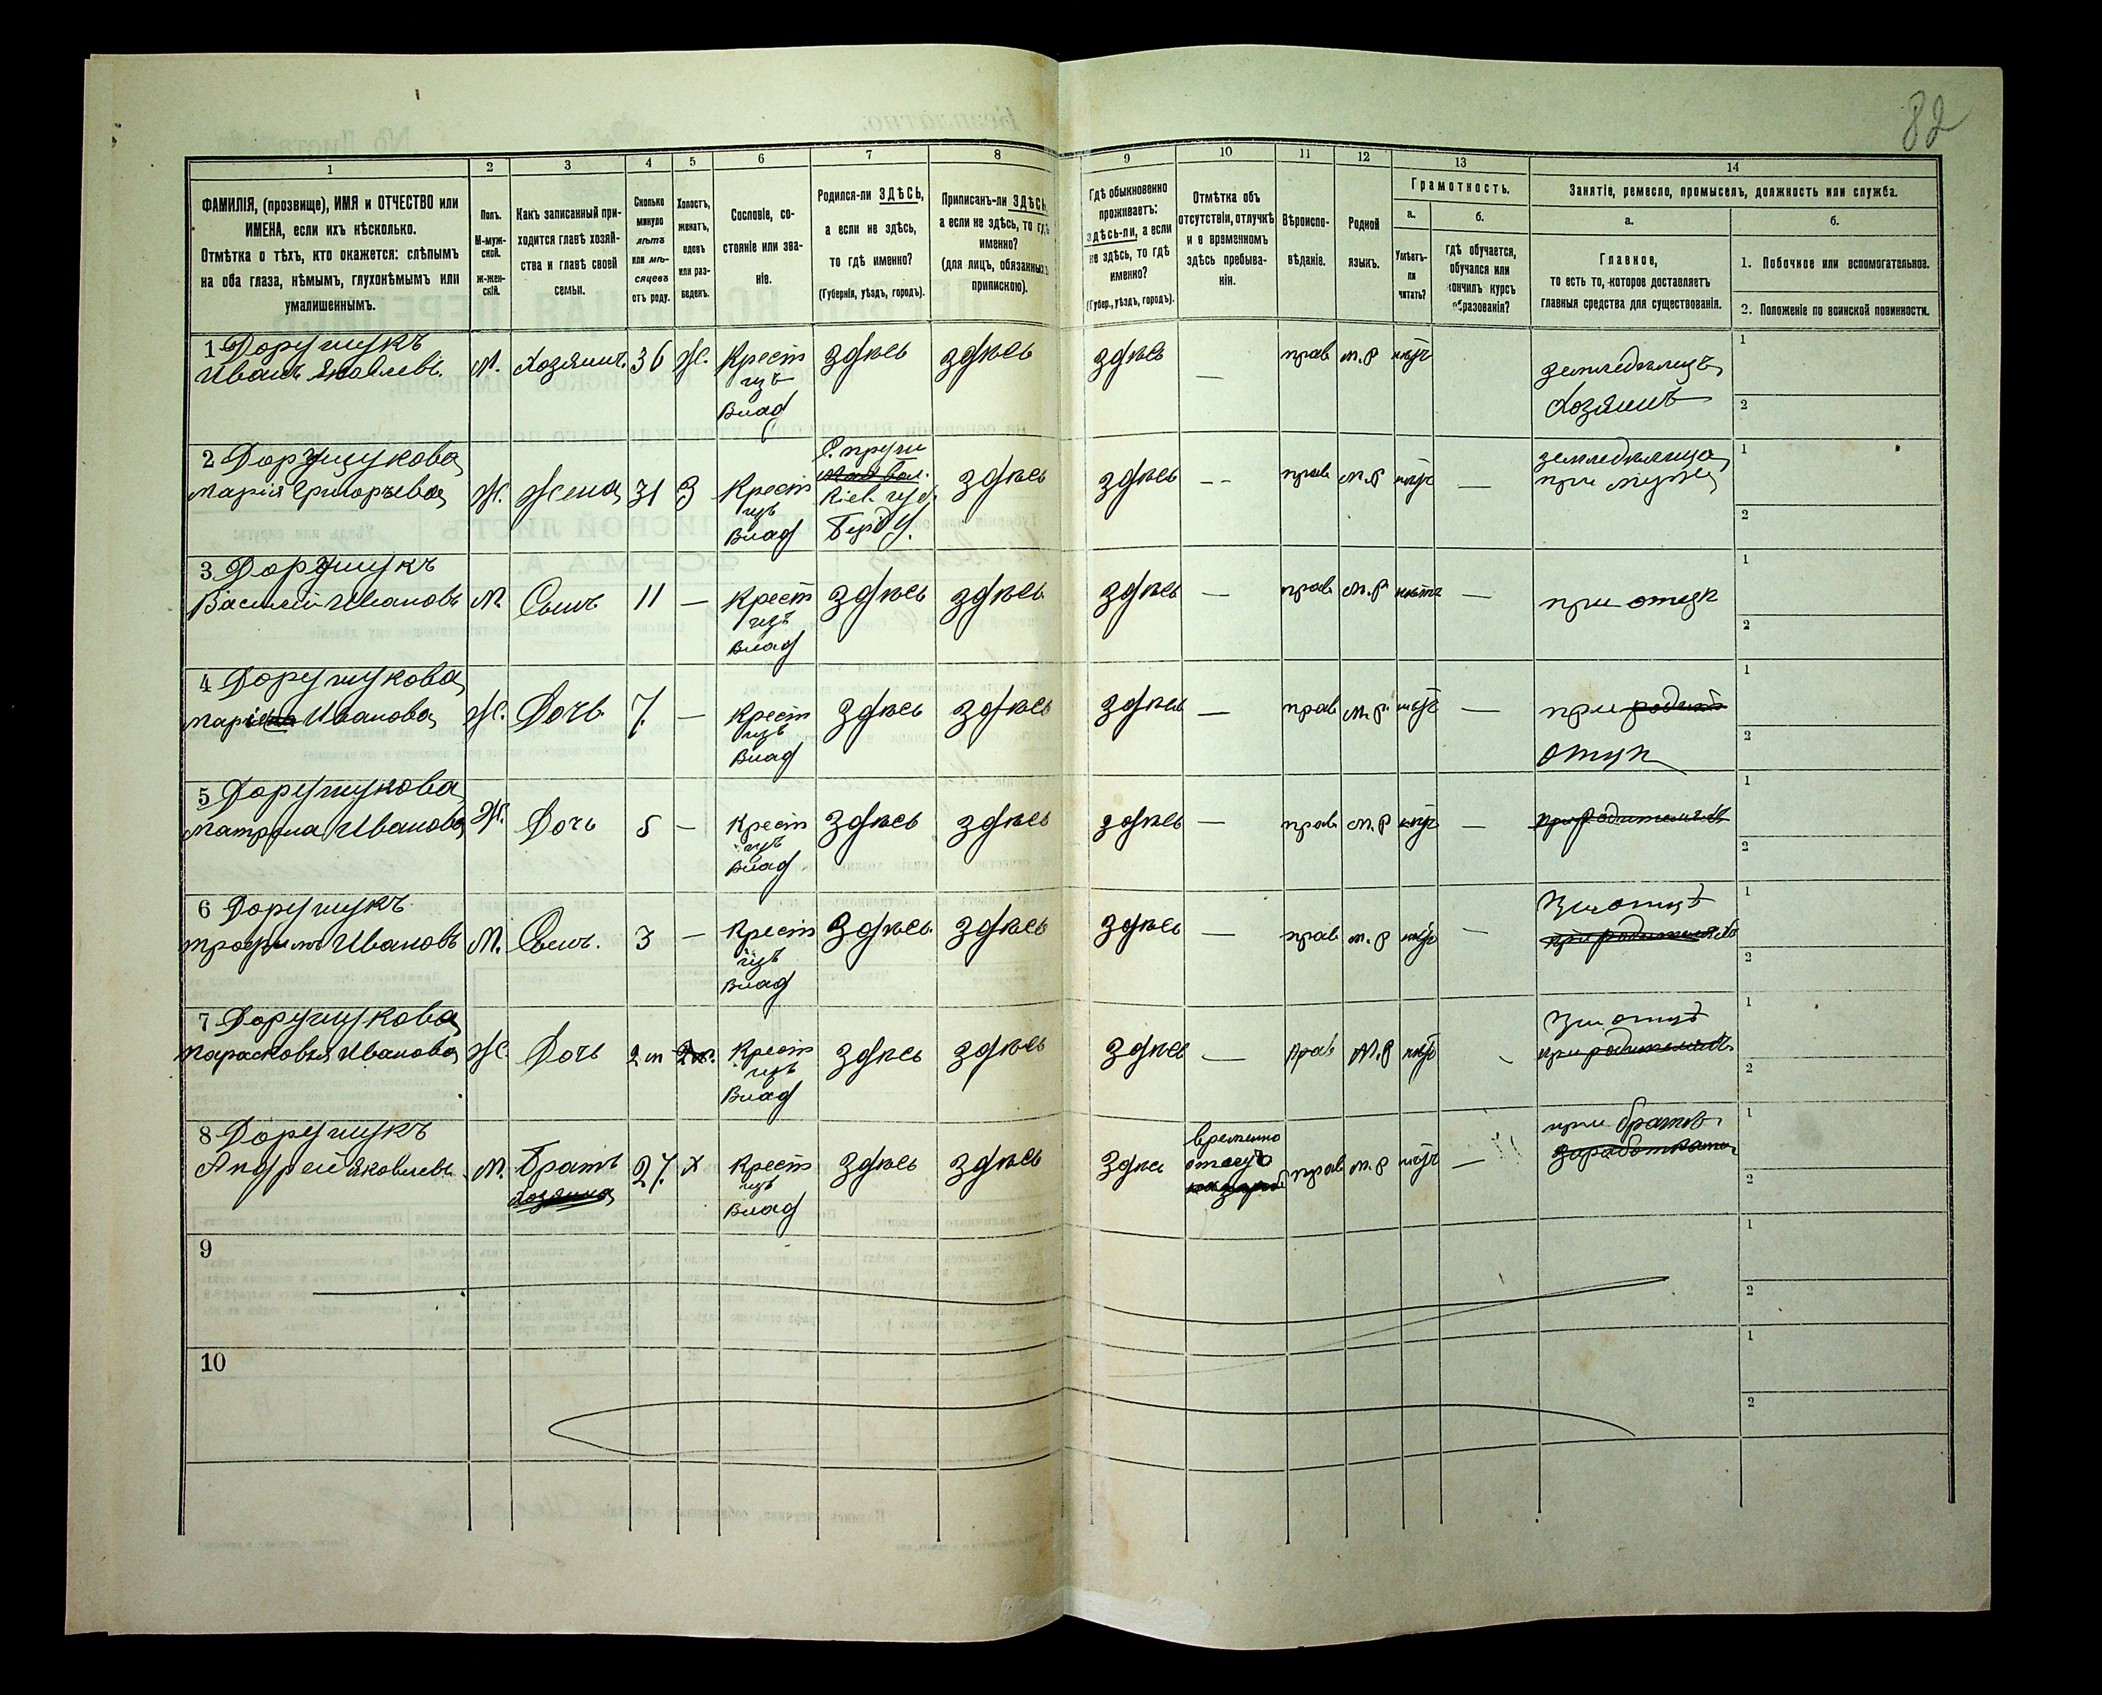 82
1 2 3 4 5 6 7 8 9 10 11 12 13 14
ФАМИЛІЯ, (прозвище), ИМЯ и ОТЧЕСТВО или
ИМЕНА, если ихъ нѣсколько.
Отмѣтка о тѣхъ, кто окажется: слѣпымъ
на оба глаза, нѣмымъ, глухонѣмымъ или
умалишеннымъ.
Полъ.
М-муж-
ской.
Ж-жен-
скій.
Какъ записанный при-
ходится главѣ хозяй-
ства и главѣ своей
семьи.
Сколько
минуло
лѣтъ
или мѣ-
сяцевъ
отъ роду.
Холостъ,
женатъ,
вдовъ
или раз-
веденъ.
Сословіе, со-
стояніе или зва-
ніе.
Родился-ли ЗДѢСЬ,
а если не здѣсь,
то гдѣ именно?
(Губернія, уѣздъ, городъ).
Приписанъ-ли ЗДѢСЬ,
а если не здѣсь, то гдѣ
именно?
(для лицъ, обязанныхъ
припискою).
Гдѣ обыкновенно
проживаетъ:
здѣсь-ли, а если
не здѣсь, то гдѣ
именно?
(Губер., уѣздъ, городъ).
Отмѣтка объ
отсутствіи, отлучкѣ
и о временномъ
здѣсь пребыва-
ніи.
Вѣроиспо-
вѣданіе.
Родной
языкъ.
Грамотность.
а.
Умѣетъ-
ли
читать?
б.
гдѣ обучается,
обучался или
кончилъ курсъ
образованія?
Занятіе, ремесло, промыселъ, должность или служба.
а.
Главное,
то есть то, которое доставляетъ
главныя средства для существованія.
б.
1. Побочное или вспомогательное.
2. Положеніе по воинской повинности.
1 Дорушукъ
Иванъ Яковлевъ М. Хозяинъ 36 Ж. Крест здѣсь здѣсь здѣсь — прав м.р нѣтъ земледѣлецъ
изъ
Влад Хозяинъ
1
2
2 Дорушукова
Марія Григорьева Ж. Жена 31 З Крест
изъ
Влад
Кіев. губ
здѣсь здѣсь -- прав м.р нѣтъ — земледѣлица
при мужѣ
1
2
3 Дорушукъ
Василій Ивановъ М. Сынъ 11 — Крест здѣсь здѣсь здѣсь — прав м.р нѣтъ — при отцѣ
изъ
Влад
1
2
4 Дорушукова
Марія Иванова Ж. Дочь 7. — Крест здѣсь здѣсь здѣсь — прав м.р. нѣтъ — при
изъ
Влад отцѣ
1
2
5 Дорушукова
Матрона Иванова Ж. Дочь 5 — Крест здѣсь здѣсь здѣсь — прав м.р нѣтъ — при родителяхъ
изъ
Влад
1
2
6 Дорушукъ
Трофимъ Ивановъ М. Сынъ. 3 — Крест здѣсь здѣсь здѣсь — прав м.р нѣтъ — при родителяхъ
изъ
Влад
1
2
7 Дорушукова
Парасковія Иванова Ж. Дочь 2 м Крест здѣсь здѣсь здѣсь — прав м.р нѣтъ при родителяхъ
изъ
Влад
1
2
8 Дорушукъ
Андрей Яковлевъ М. Братъ 27. х Крест здѣсь здѣсь здѣсь временно прав м.р нѣтъ — при братѣ
хозяина
изъ
Влад
1
2
9
1
2
10
1
2